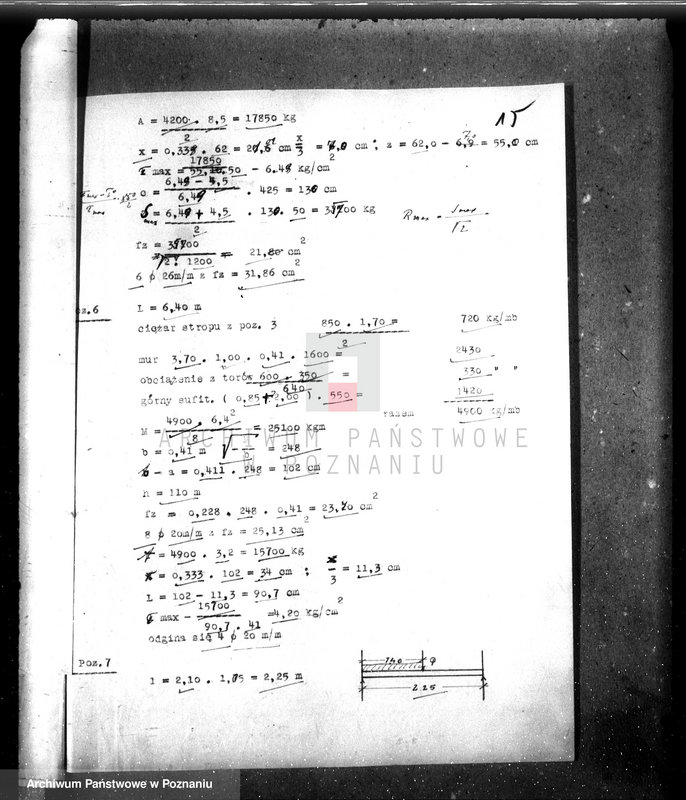 15
A = 4200 . 8,5 = 17850 Kg
2
x = 0,339 . 62 = 21,0 cm x/3 = 7,0 cm ; z = 62,0 - 7,0 = 55,0 cm
τ max = 17850 / 55,10.50 - 6.49 kg/cm 2
o = 6,49 - 4,5 / 6,49 . 425 = 130 cm
= 6,49 + 4,5 / 2 . 130. 50 = 35700 Kg
fz = 35700 / 2. 1200 = 21,80 cm 2
6 ϕ 26m/m z fz = 31,86 cm 2
oz.6
L = 6,40 m
ciężar stropu z poz. 3 850 . 1,70 = 720 Kg/mb
2
mur 3,70 . 1,00 . 0,41 . 1600 = 2430
obciążenie z torów 600 . 350 / 640 = 330 " "
górny sufit. ( 0,85 + 2,00 ) . 550 = 1420
razem 4900 Kg/mb
M = 4900 . 6,4² / 8 = 25100 Kgm
b = 0,41 m = 248
h - a = 0,411 . 248 = 102 cm
h = 110 m
fz = 0,228 . 248 . 0,41 = 23,20 cm 2
8 ϕ 20m/m z fz = 25,13 cm 2
= 4900 . 3,2 = 15700 Kg
x = 0,333 . 102 = 34 cm ; x/3 = 11,3 cm
L = 102 - 11,3 = 90,7 cm
max - 15700 / 90,7 . 41 = 4,20 Kg/cm 2
odgina się 4 ϕ 20 m/m
Poz.7
l = 2,10 . 1,05 = 2,25 m
140 P
2.25
ARCHIWUM PAŃSTWOWE
W POZNANIU
Archiwum Państwowe w Poznaniu